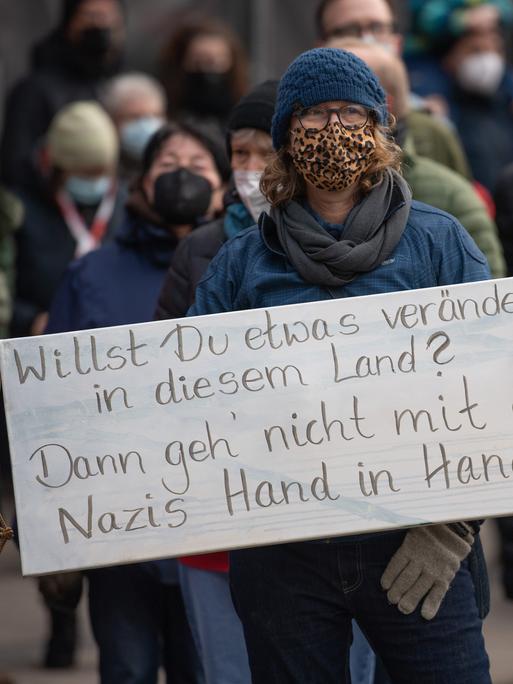 Willst Du etwas verände
in diesem Land?
Dann geh' nicht mit
Nazis Hand in Han